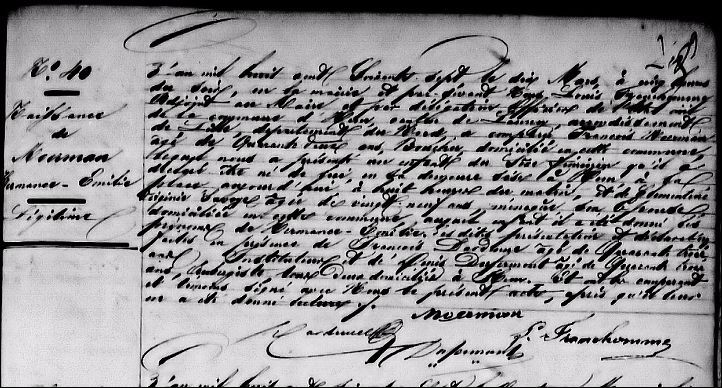 N.o 40
Naissance
de
Moerman
Hermance - Emilie
Légitime
L'an mil huit cent soixante sept le dix Mars, à cinq heures
du soir, en la mairie et par devant Nous Louis Franchomme
Adjoint au Maire et par délégation Officier de l'état civil
de la commune d' canton de arrondissement
de Lille, département du Nord, a comparu François Moerman
âgé de quarante trois ans, Boucher, domicilié en cette commune,
lequel nous a présenté un enfant du Sexe féminin qu'il a
déclaré être né de lui, en sa demeure sise à la
place aujourd'hui, à huit heures du matin, et de Clémentine
âgée de vingt neuf ans ménagère, son épouse,
domiciliée en cette commune, auquel enfant il a donné les
prénoms de Hermance - Emilie, les dites présentation et déclaration
faites en présence de François âgé de quarante trois
ans, Instituteur et de âgé de quarante trois
ans, tous deux domiciliés à Et ont le comparant
et témoins signé avec Nous le présent acte, après qu'il leur
en a été donné lecture.
Moerman
L.s Franchomme
L'an mil huit cent